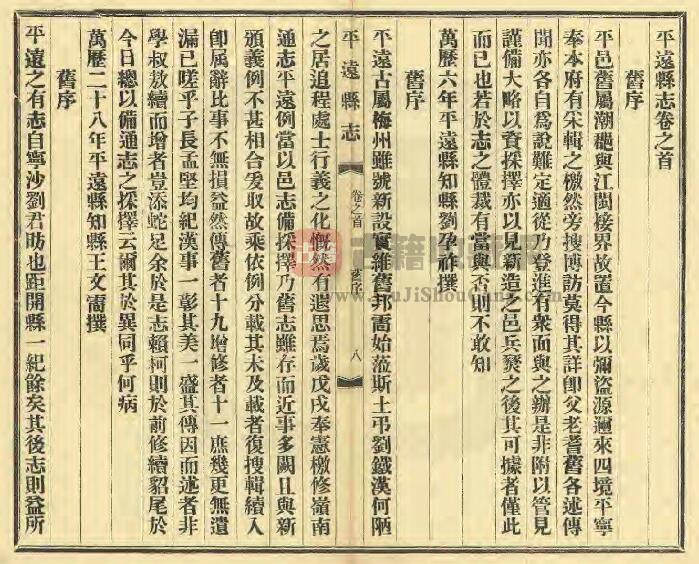 平遠縣志卷之首
舊序
平邑舊屬潮郡與江閩接界故置今縣以彌盜源邇來四境平寧
奉本府有宋輯之檄然旁搜博訪莫得其詳卽父老耆舊各述傳
聞亦各自爲說難定適從乃登進有衆面與之辦是非附以管見
謹備大略以資採擇亦以見新造之邑兵燹之後其可據者僅此
而已也若於志之體裁有當與否則不敢知
萬歷六年平遠縣知縣劉孕祚撰
舊序
平遠古屬梅州雖號新設實維舊邦需始蒞斯土弔劉鐵漢何陋
平遠縣志
卷之首
舊序
八
之居追程處士行義之化慨然有遐思焉歲戊戌奉憲檄修嶺南
通志平遠例當以邑志備採擇乃舊志雖存而近事多闕且與新
頒義例不甚相合爰取故乘依例分載其未及載者復搜輯續入
卽属辭比事不無損益然傳舊者十九增修者十一庶幾更無遺
漏已嗟乎子長孟堅均紀漢事一彰其美一盛其傳因而述者非
學叔敖續而增者豈添蛇足余於是志賴柯則於前修續貂尾於
今日總以備通志之採擇云爾其於異同乎何病
萬歷二十八年平遠縣知縣王文需撰
舊序
平遠之有志自寧沙劉君昉也距開縣一紀餘矣其後志則益所